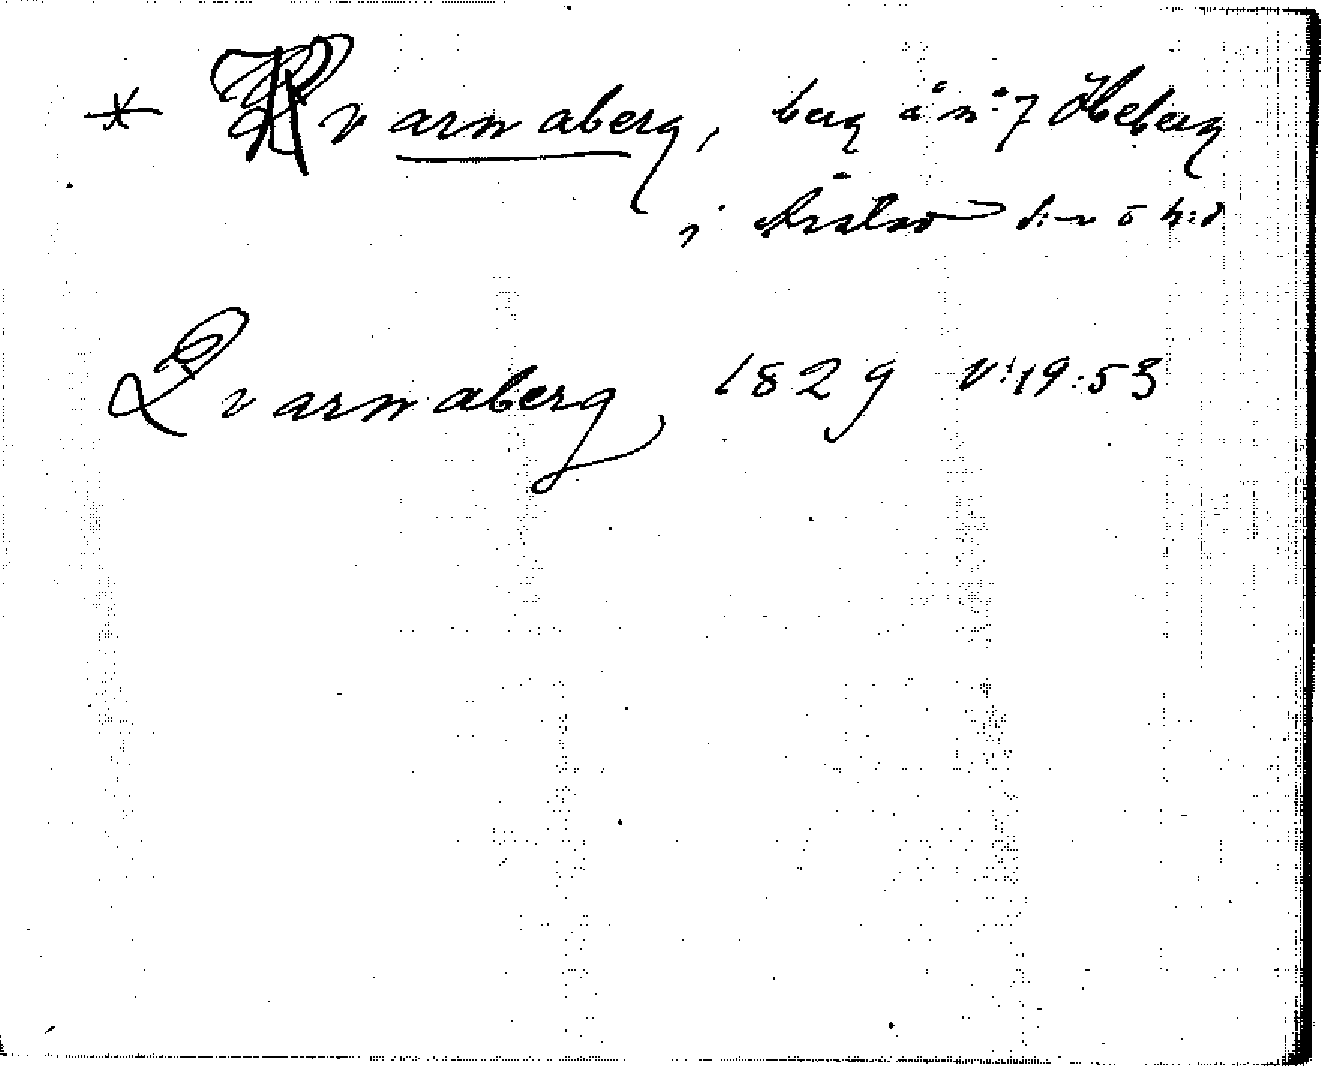 * Kvarnaberg, berg å n:7 Heberg
i Årstad s:n o h:d
Qvarnaberg 1829 V:19:53